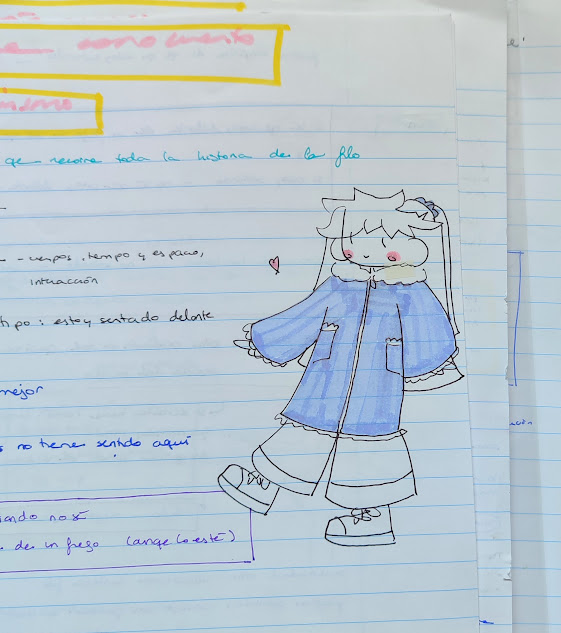 como cuento
que recorre toda la historia de la filo
- cuerpos, tiempo y espacio,
interacción
tipo: estoy sentado delante
mejor
no tienen sentido aquí
ando no sé
de un fuego (aunque lo esté)